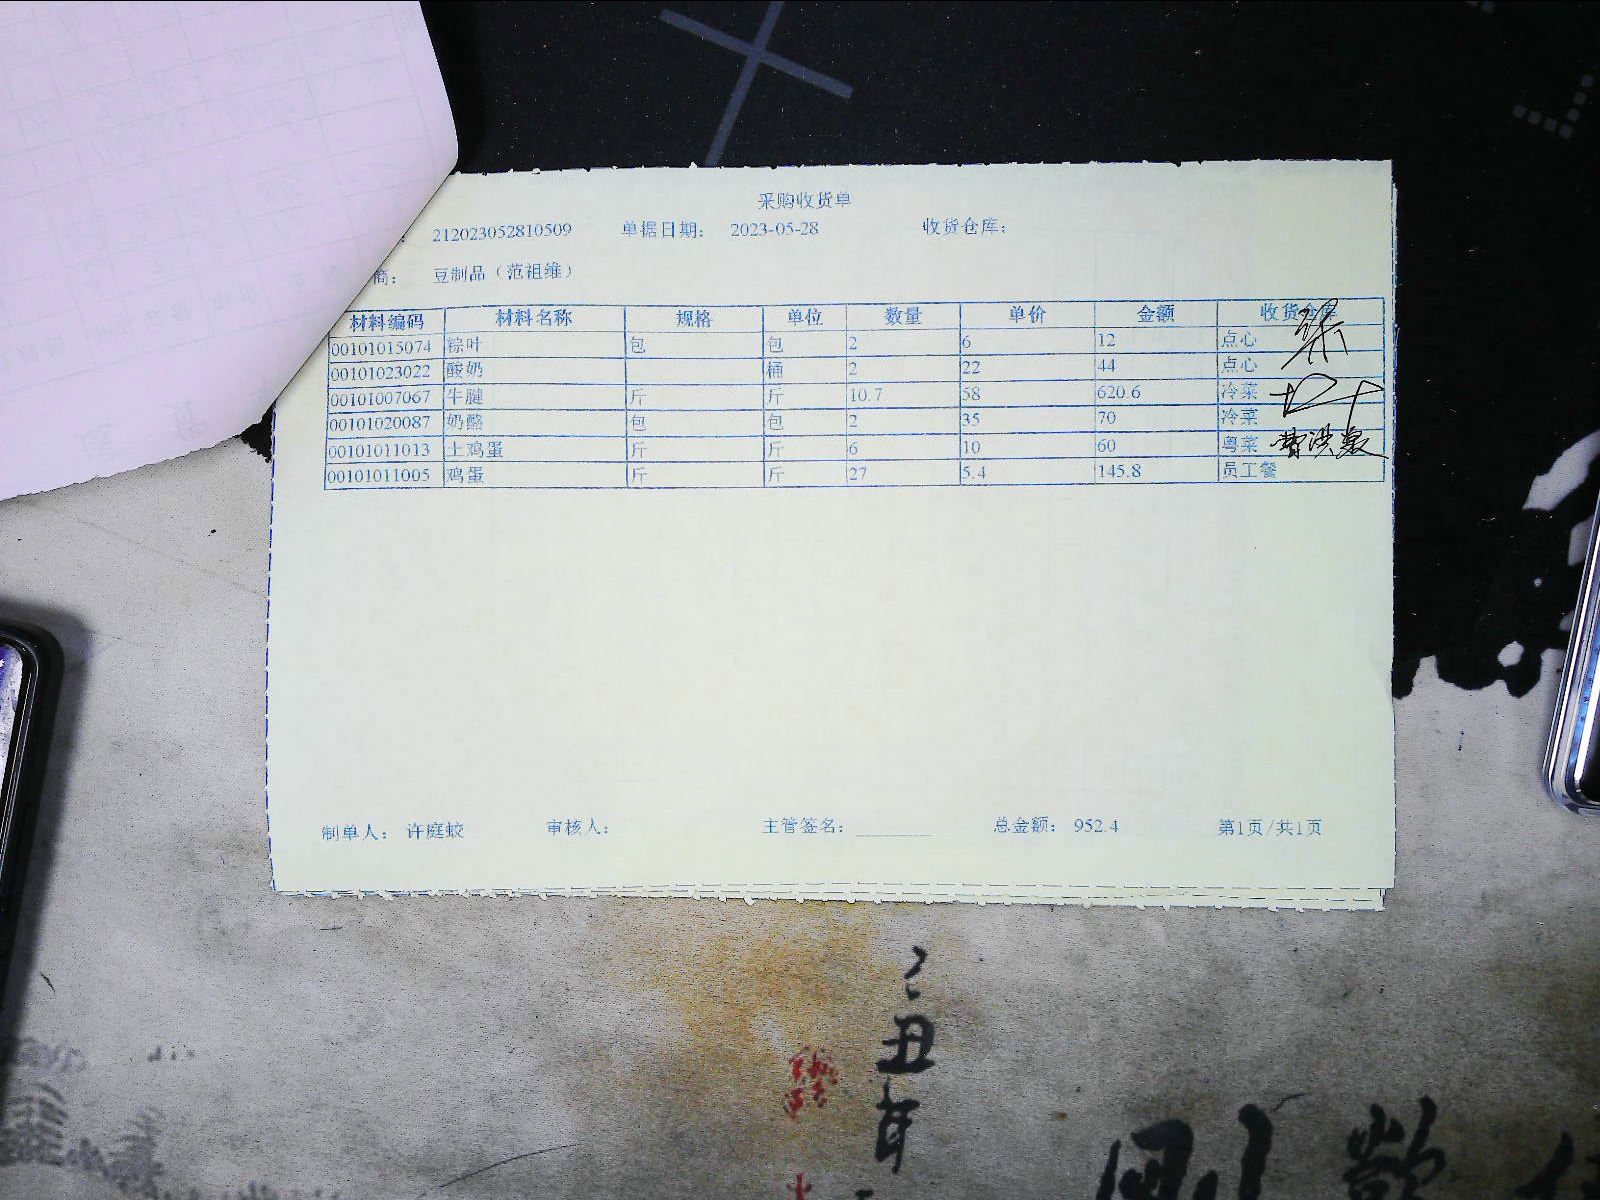 采购收货单
： 212023052810509 单据日期： 2023-05-28 收货仓库：
商： 豆制品（范祖维）
材料编码 材料名称 规格 单位 数量 单价 金额 收货仓库
00101015074 粽叶 包 包 2 6 12 点心
00101023022 酸奶 桶 2 22 44 点心
00101007067 牛腱 斤 斤 10.7 58 620.6 冷菜
00101020087 奶酪 包 包 2 35 70 冷菜
00101011013 土鸡蛋 斤 斤 6 10 60 粤菜
00101011005 鸡蛋 斤 斤 27 5.4 145.8 员工餐
制单人： 许庭蛟 审核人： 主管签名： 总金额： 952.4 第1页/共1页
丑年